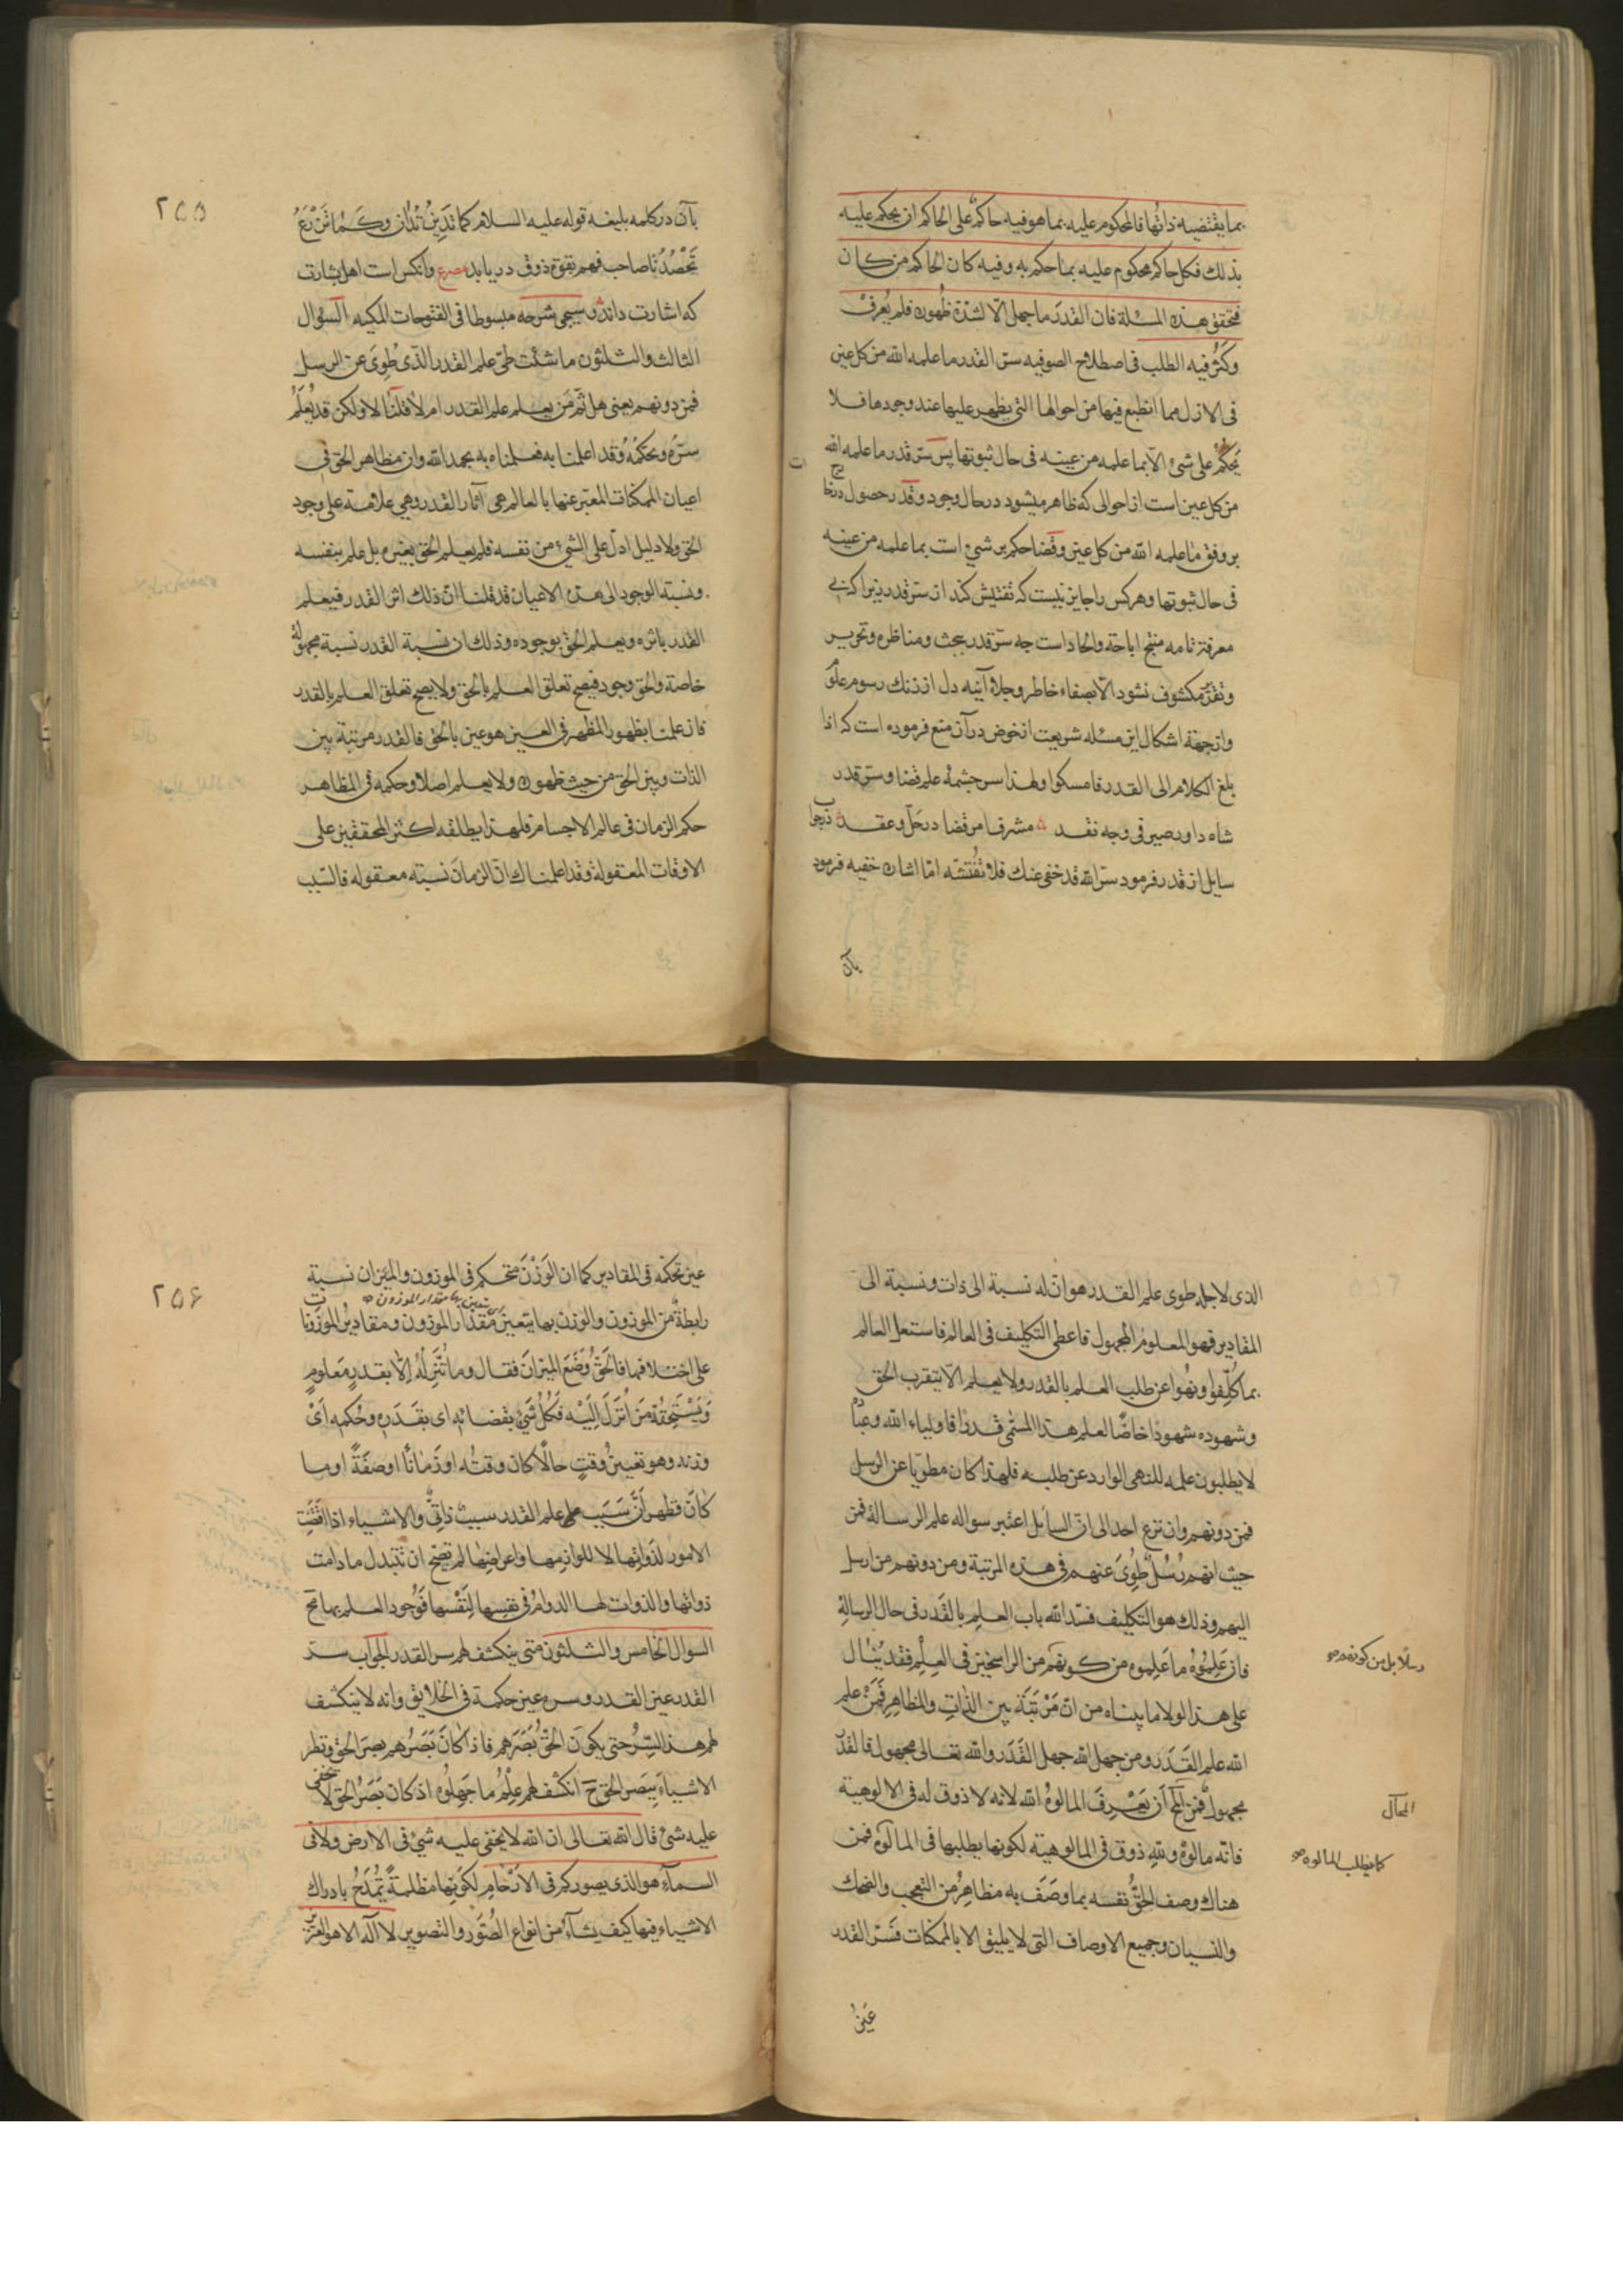 بما يقتضيه ذاتها فالمحكوم عليه بما هو فيه حاكم على الحاكم ان يحكم عليه
بذلك فكل حاكم محكوم عليه بما حكم به وفيه كان الحاكم من كان
فتحقق هذه المسئلة فان القدر ما جهل الا لشدة ظهوره فلم يُعرف
وكثُر فيه الطلب فى اصطلاح الصوفيه سرّ القدر ما علمه الله من كل عين
فى الازل مما انطبع فيها من احوالها التى يظهر عليها عند وجودها فلا
يحكم على شئ الا بما علمه من عينه فى حال ثبوتها پس سرّ قدر ما علمه الله
من كل عين است از احوالى كه ظاهر ميشود در حال وجود وقدر حصول
بر وفق ما علمه الله من كل عين وقضا حكم بر شئ است بما علمه من عينه
فى حال ثبوتها وهر كس را جايز نيست كه تفتيش كند از سرّ قدر زيرا كه بى
معرفة تامه منتج اباحة والحاد است چه سرّ قدر ببحث ومناظره وتحرير
وتقرير مكشوف نشود الا بصفاء خاطر وجلاء آينه دل از زنك رسوم علوم
واز جهة اشكال اين مسئله شريعت از خوض در آن منع فرموده است كه اذا
بلغ الكلام الى القدر فامسكوا ولهذا سرچشمهٔ علم قضا وسرّ قدر
شاه داور صير فى وجه نقد مشرف امر قضا در حلّ وعقد
سايل از قدر فرمود سرّ الله قد خفى عنك فلا تفتشه امّا اشاره خفيه فرمود
بآن
٢٥٥
بآن در كلمه بليغه قوله عليه السلام كما تدين تُدان وكما تزرع
تحصد تا صاحب فهم بقوة ذوق در يابد مصرع وآنكس است اهل بشارت
كه اشارت داند وسيجئ شرحه مبسوطا فى الفتوحات المكيه السؤال
الثالث والثلثون ما شئت طىّ علم القدر الذى طُوىَ عن الرسل
فمن دونهم يعنى هل ثَمّ مَن يعلم علم القدر ام لا قلنا لا ولكن قد يُعلَم
سرّه وتحكمه وقد اعلمنا به فعلمناه به بحمد الله وان مظاهر الحق فى
اعيان الممكنات المعتبر عنها بالعالم هى آثار القدر وهى علامة على وجود
الحق ولا دليل ادلّ على الشئ من نفسه فلم يعلم الحق بغيره بل علم بنفسه
ونسبة الوجود الى هذه الاعيان قد قلنا انّ ذلك اثر القدر فيعلم
القدر باثره ويعلم الحق بوجوده وذلك ان نسبة القدر نسبة مجهولة
خاصة والحق وجود فيصح تعلق العلم بالحق ولا يصح تعلق العلم بالقدر
فان علمنا بظهور المظهر فى العين هو عين بالحق فالقدر مرتبة بين
الذات وبين الحق من حيث ظهوره ولا يعلم اصلا وحكمه فى المظاهر
حكم الزمان فى عالم الاجسام فلهذا يطلقه اكثر المحققين على
الاوقات المعقولة وقد اعلمناك انّ الزمان نسبته معقوله فالسبب
الذى لاجله طوى علم القدر هو انّ له نسبة الى ذات ونسبة الى
المقادير فهو المعلوم المجهول فاعطى التكليف فى العالم فاستعمل العالم
بما كُلّفوا ونُهوا عن طلب العلم بالقدر ولا يعلم الا بتقرب الحق
وشهوده شهودا خاصًا لعلم هذا المسمّى قدرا فاولياء الله وعباده
لا يطلبون علمه للنهى الوارد عن طلبه فلهذا كان مطويّا عن الرسل
فمن دونهم وان نزع احد الى انّ السايل اعتبر سواله علم الرسالة فمن
حيث انهم رُسُل طُوِىَ عنهم فى هذه المرتبة ومن دونهم من ارسل
اليهم وذلك هو التكليف فسدّ الله باب العلم بالقدر فى حال الرسالة
فان عَلِمُوهُ ما عَلِموه من كونهم من الراسخين فى العلم فقد يُنال
رسلا بل من كونهم صح
على هذا لولا ما بيناه من انّ مَرْتَبَتَه بين الذات والمظاهر فَمَنْ علم
الله علم القَدَر ومن جهل الله جهل القَدَر والله تعالى مجهول فالقدر
مجهول فمن المح أن يَعْرِفَ المالوهُ الله لانه لا ذوق له فى الالوهية
المحال
فانّه مالوهٌ ولله ذوق فى المالوهيّة لكونها يطلبها فى المالوه فمن
كما يطلب المالوه صح
هناك وصف الحقّ نفسه بما وصَفَ به مظاهرُه من التعجب والضحك
والنسيان وجميع الاوصاف التى لا يليق الا بالممكنات فسرّ القدر
عينُ
٢٥٦
عين تحكمّه فى المقادير كما ان الوَزْنَ متحكم فى الموزون والميزان نسبة
اى يتعين بها مقدار الموزون
رابطةٌ من الموزون والوزن بها يتعين مقدار الموزون ومقادير الموزونات
على اختلافها فالحقّ وَضَعَ الميزانَ فقال وما نُنَزِّلُهُ الّا بقدرٍ مَعلومٍ
وَيَسْتَحِقُّهُ مَن اُنْزِلَ اِلَيْهِ فَكُلُّ شَئٍ بقضائه اى بقَدَره وحُكمه اىْ
وزنه وهو تعيينُ وقتٍ حالًا كان وقتُه اوزَمانًا اوصفَةً او ما
كانَ فظهر أنَّ سَبَب طى علم القدر سببٌ ذاتىٌّ والاشياء اذا اقتضت
الامور لذَواتها لا للوازمها واعراضها لم تصحّ ان تتبدل ما دامت
ذواتها والذوات لها الدوامُ فى نفسها لِنَفْسها فَوُجود العلم بها مح
السوال الخامس والثلثون متى ينكشف لهم سر القدر الجواب سرّ
القدر عين القدر وسره عين حكمة فى الخلائق وانه لا ينكشف
لهم هذا السّرّ حتى يكونَ الحقّ بَصَرَهم فاذا كانَ بَصَرُهم بصرَ الحق ونظر
الاشياءَ ببَصَر الحق ح انكشف لهم عِلمُ ما جَهِلوه اذ كان بَصَرُ الحق لا يخفى
عليه شئ قال الله تعالى ان الله لا يخفى عليه شئ فى الارض ولا فى
السمآء هو الذى يصوركم فى الارحام لكونها مظلمةً تُمُدّحُ بادراك
الاشياء فيها كيف يشآء من انواع الصُوَر والتصوير لا اله الا هو العزيز